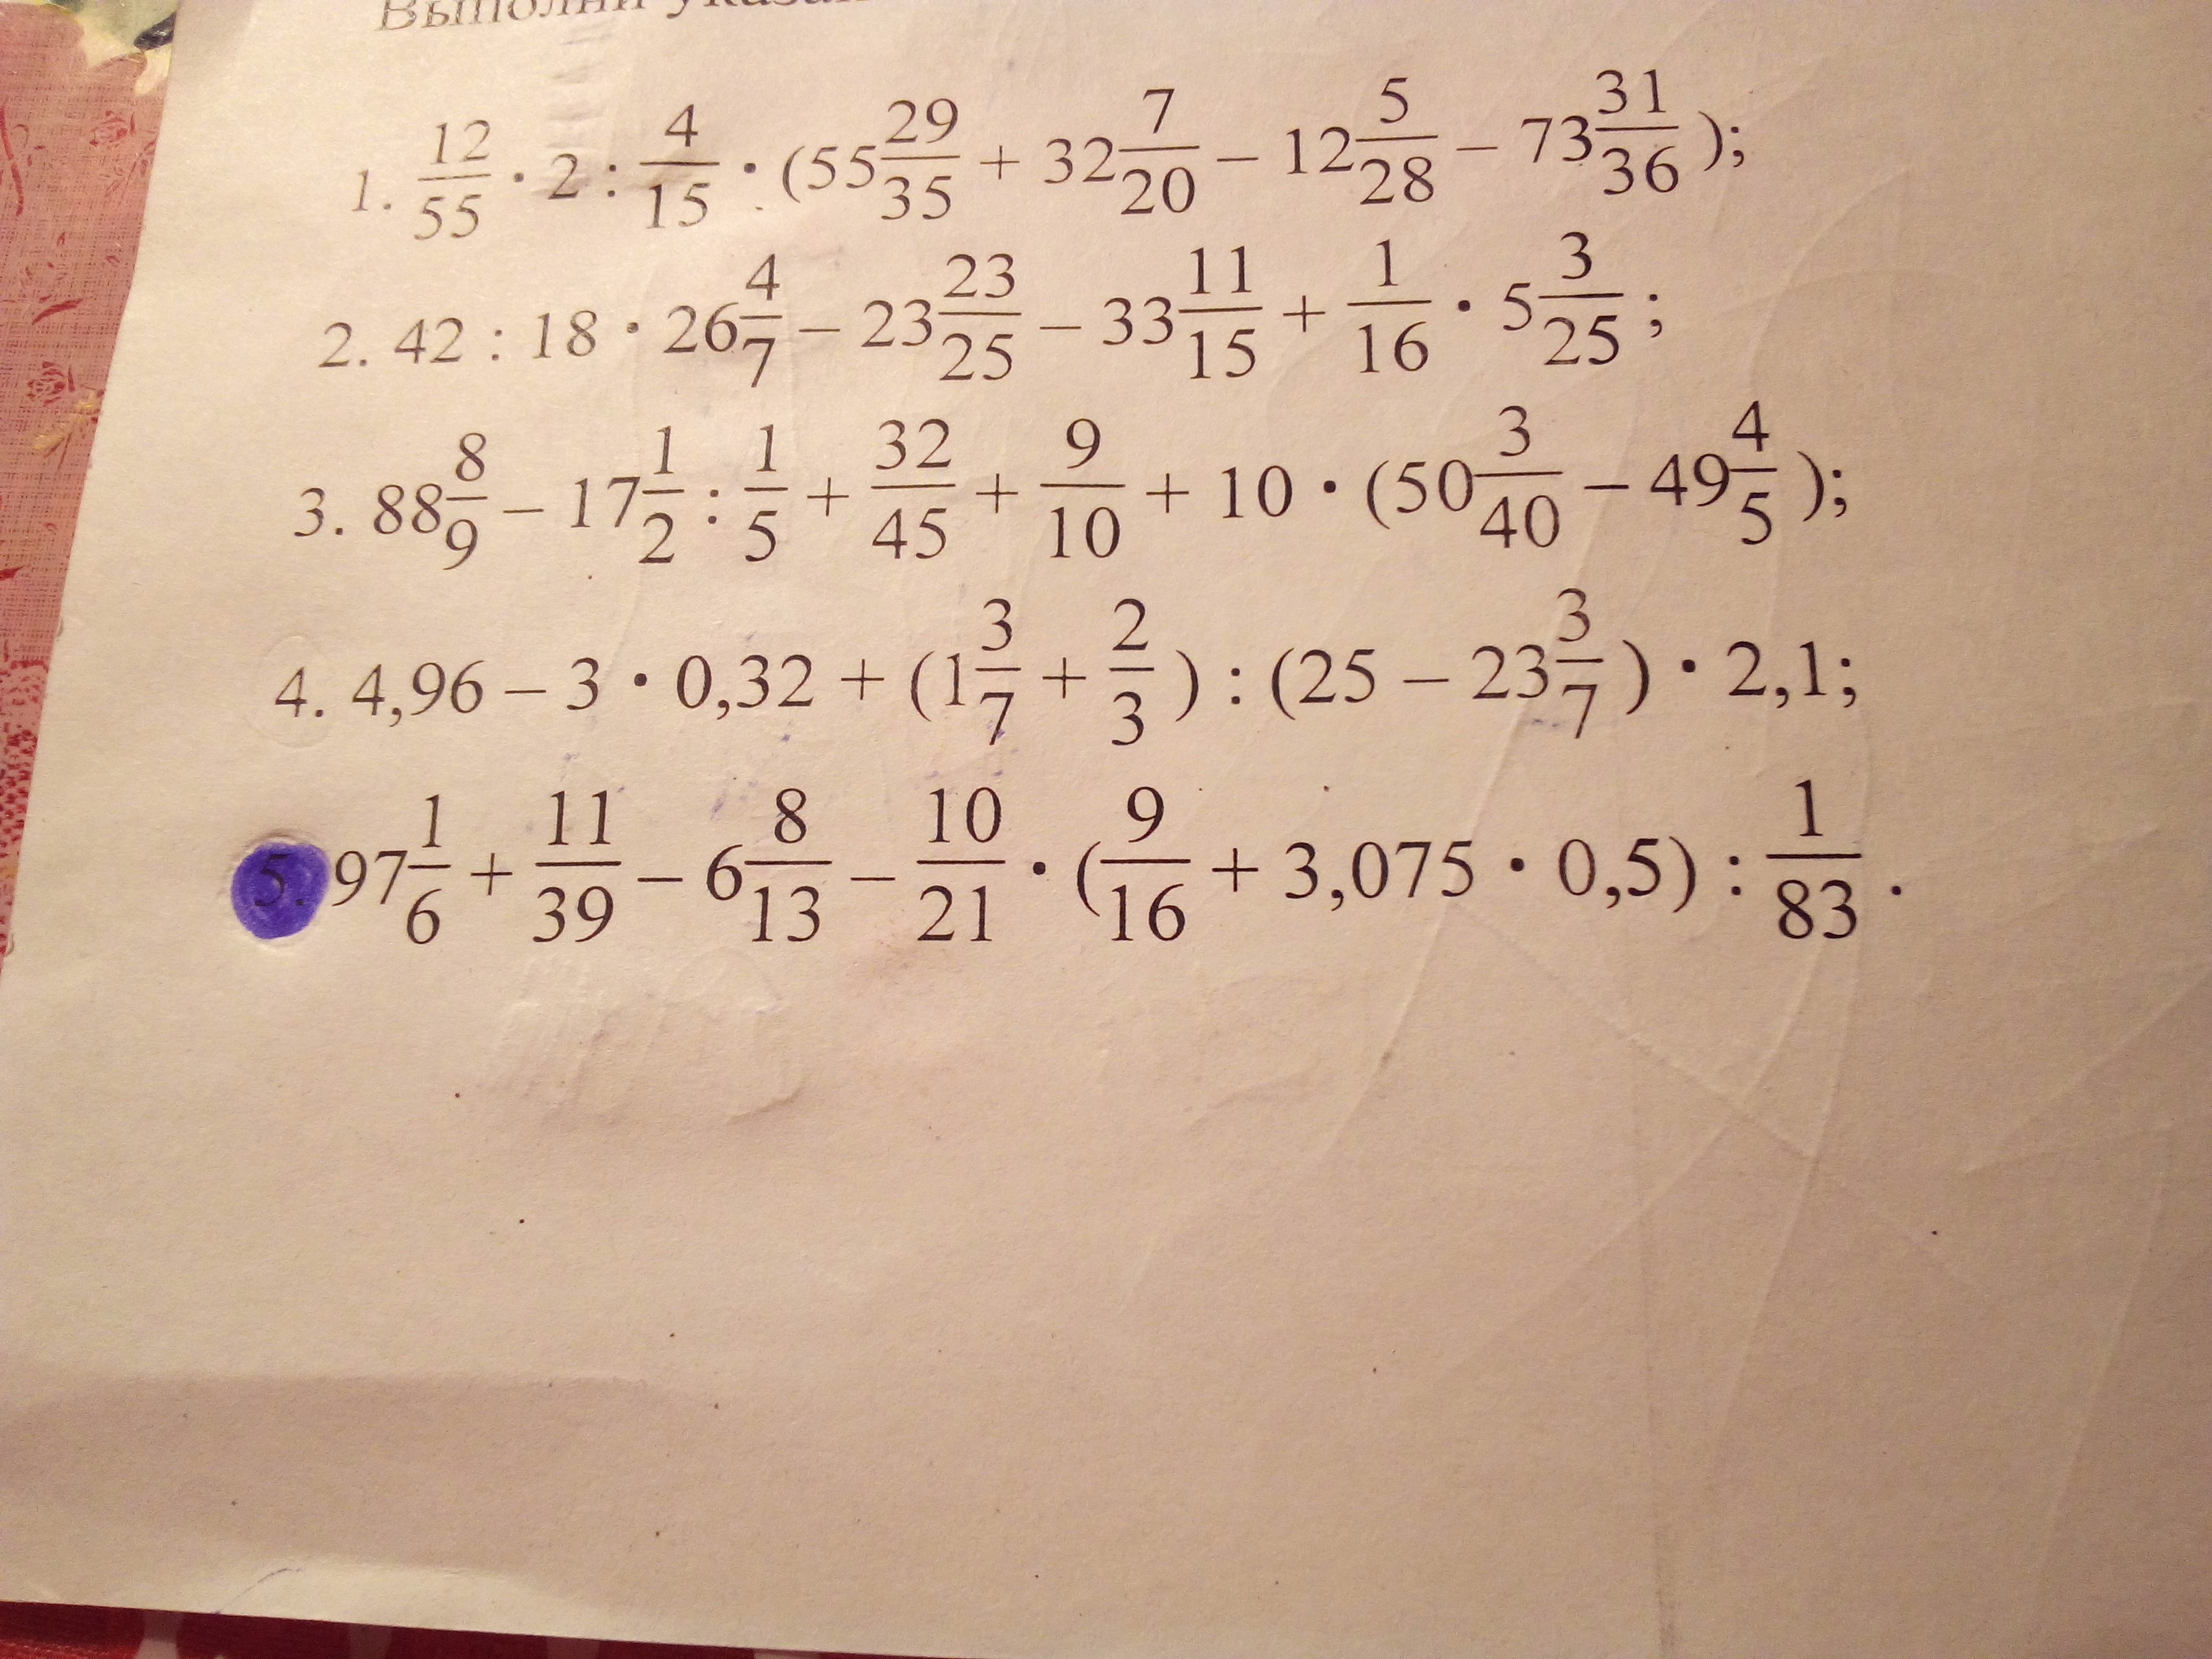 Выполни
1. 12/55 · 2 : 4/15 · (55 29/35 + 32 7/20 − 12 5/28 − 73 31/36);
2. 42 : 18 · 26 4/7 − 23 23/25 − 33 11/15 + 1/16 · 5 3/25;
3. 88 8/9 − 17 1/2 : 1/5 + 32/45 + 9/10 + 10 · (50 3/40 − 49 4/5);
4. 4,96 − 3 · 0,32 + (1 3/7 + 2/3) : (25 − 23 3/7) · 2,1;
5. 97 1/6 + 11/39 − 6 8/13 − 10/21 · (9/16 + 3,075 · 0,5) : 1/83.